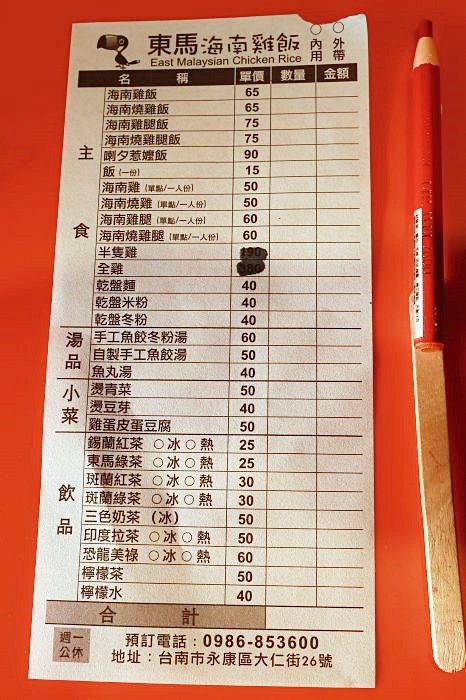 東馬海南雞飯
East Malaysian Chicken Rice
○內用 ○外帶
名稱 單價 數量 金額
主食
海南雞飯 65
海南燒雞飯 65
海南雞腿飯 75
海南燒雞腿飯 75
喇夕惹嬤飯 90
飯(一份) 15
海南雞(單點/一人份) 50
海南燒雞(單點/一人份) 50
海南雞腿(單點/一人份) 60
海南燒雞腿(單點/一人份) 60
半隻雞 190
全雞 380
乾盤麵 40
乾盤米粉 40
乾盤冬粉 40
湯品
手工魚餃冬粉湯 60
自製手工魚餃湯 50
魚丸湯 40
小菜
燙青菜 50
燙豆芽 40
雞蛋皮蛋豆腐 50
飲品
錫蘭紅茶 ○冰○熱 25
東馬綠茶 ○冰○熱 25
斑蘭紅茶 ○冰○熱 30
斑蘭綠茶 ○冰○熱 30
三色奶茶(冰) 50
印度拉茶 ○冰○熱 50
恐龍美祿 ○冰○熱 60
檸檬茶 50
檸檬水 40
合計
週一公休
預訂電話:0986-853600
地址:台南市永康區大仁街26號